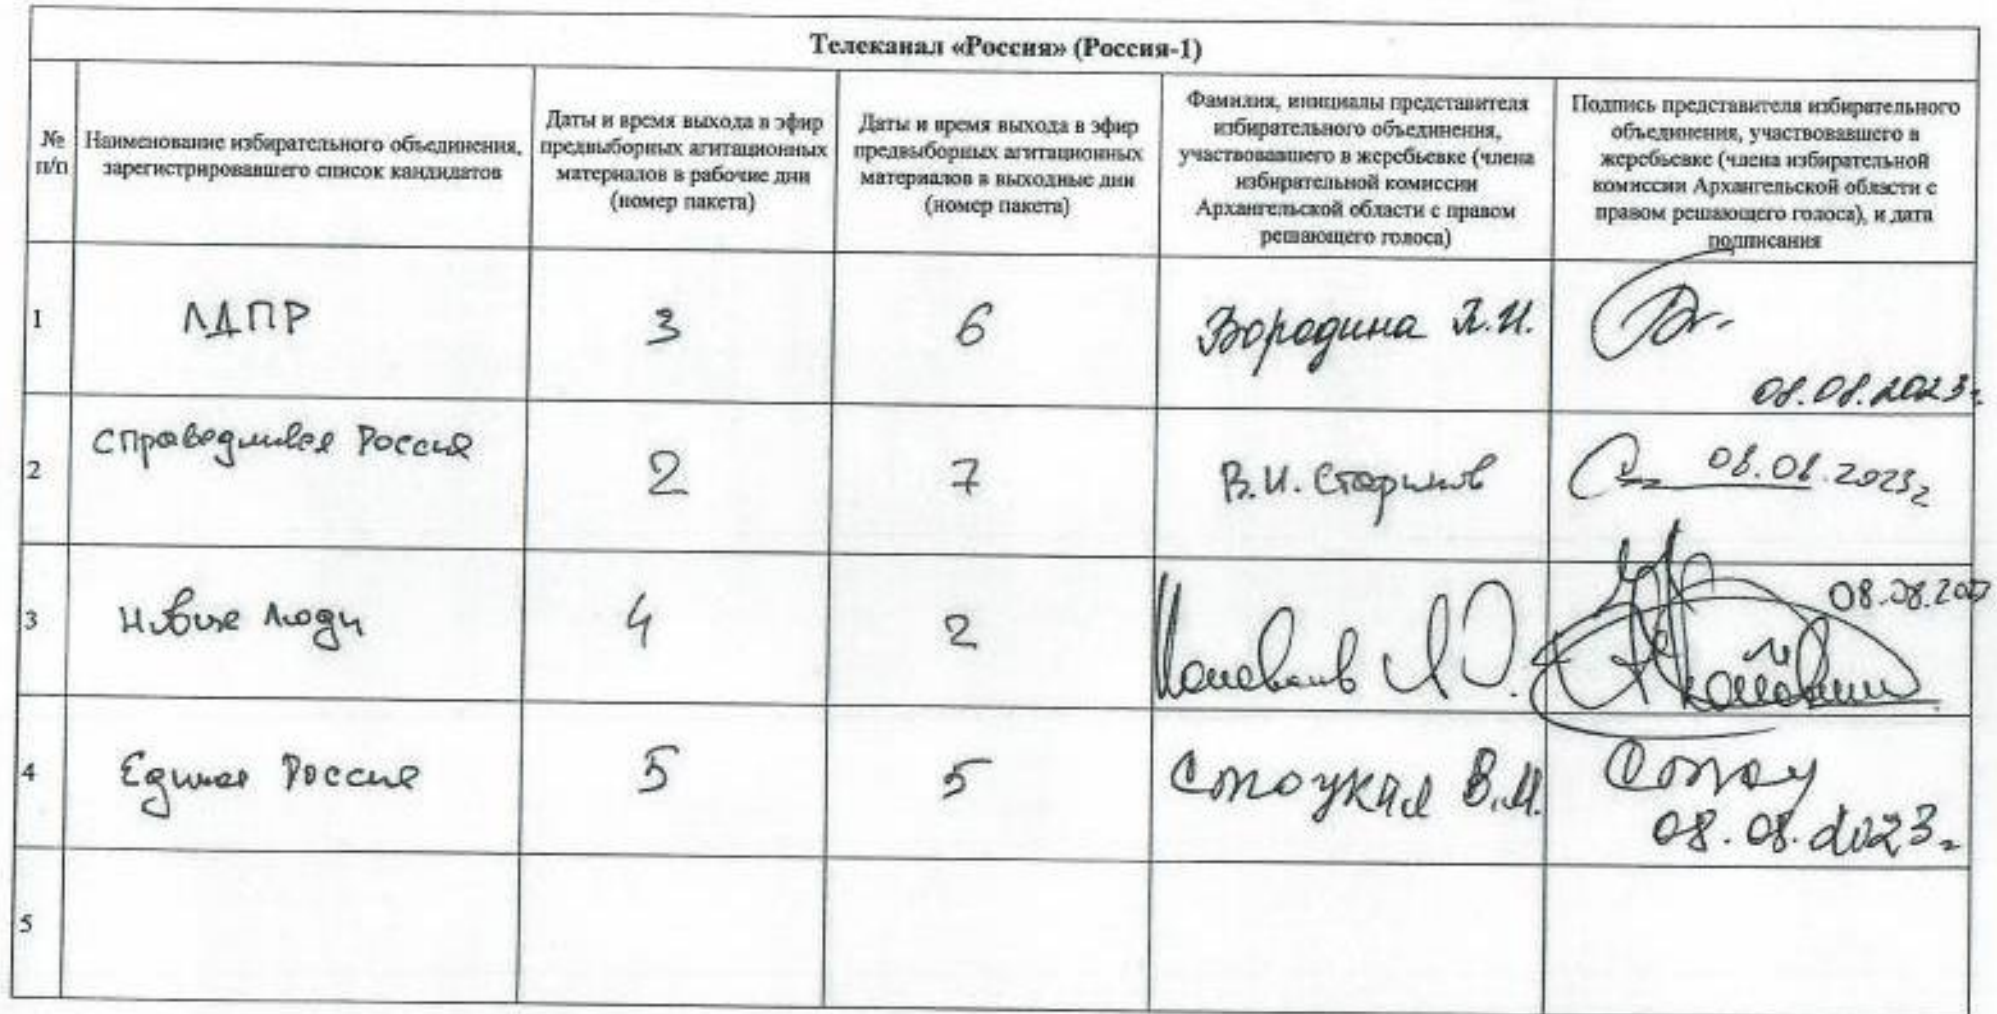 Телеканал «Россия» (Россия-1)
№
п/п
Наименование избирательного объединения,
зарегистрировавшего список кандидатов
Даты и время выхода в эфир
предвыборных агитационных
материалов в рабочие дни
(номер пакета)
Даты и время выхода в эфир
предвыборных агитационных
материалов в выходные дни
(номер пакета)
Фамилия, инициалы представителя
избирательного объединения,
участвовавшего в жеребьевке (члена
избирательной комиссии
Архангельской области с правом
решающего голоса)
Подпись представителя избирательного
объединения, участвовавшего в
жеребьевке (члена избирательной
комиссии Архангельской области с
правом решающего голоса), и дата
подписания
1
ЛДПР
3
6
Бородина Л.И.
08.08.2023г
2
Справедливая Россия
2
7
В.И. Стариков
08.08.2023г
3
Новые люди
4
2
08.08.202
4
Единая Россия
5
5
В.М.
08.08.2023г
5